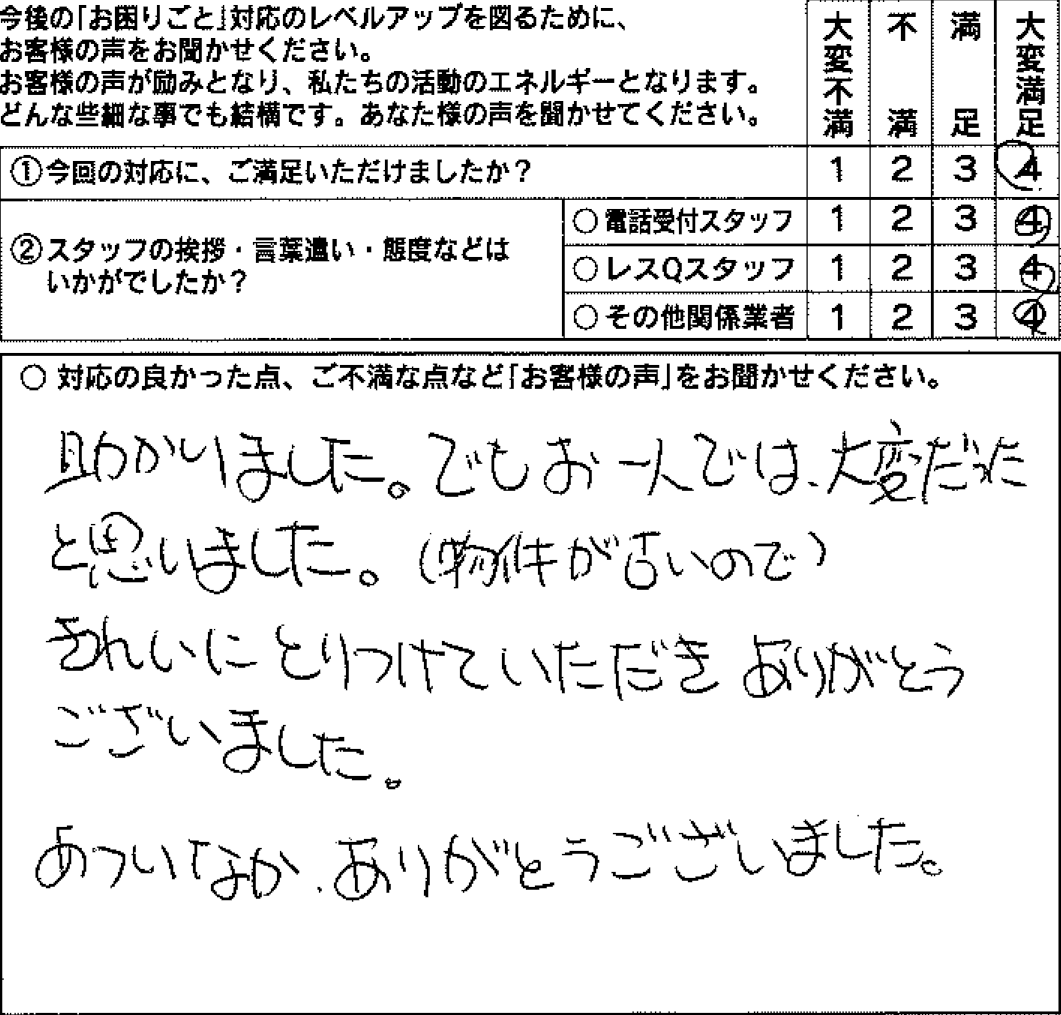 今後の「お困りごと」対応のレベルアップを図るために、
お客様の声をお聞かせください。
お客様の声が励みとなり、私たちの活動のエネルギーとなります。
どんな些細な事でも結構です。あなた様の声を聞かせてください。
大変不満 不満 満足 大変満足
①今回の対応に、ご満足いただけましたか? 1 2 3 4
②スタッフの挨拶・言葉遣い・態度などは
いかがでしたか?
○電話受付スタッフ 1 2 3 4
○レスQスタッフ 1 2 3 4
○その他関係業者 1 2 3 4
○ 対応の良かった点、ご不満な点など「お客様の声」をお聞かせください。
助かりました。でもお一人では、大変だった
と思いました。(物件が古いので)
きれいにとりつけていただき ありがとう
ございました。
あついなか、ありがとうございました。